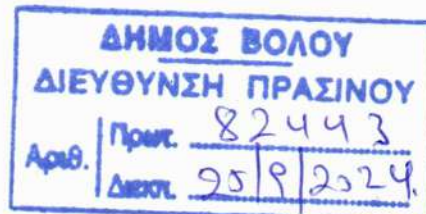 ΔΗΜΟΣ ΒΟΛΟΥ
ΔΙΕΥΘΥΝΣΗ ΠΡΑΣΙΝΟΥ
Αριθ. Πρωτ. 82443
Διεκπ. 25/9/2024.